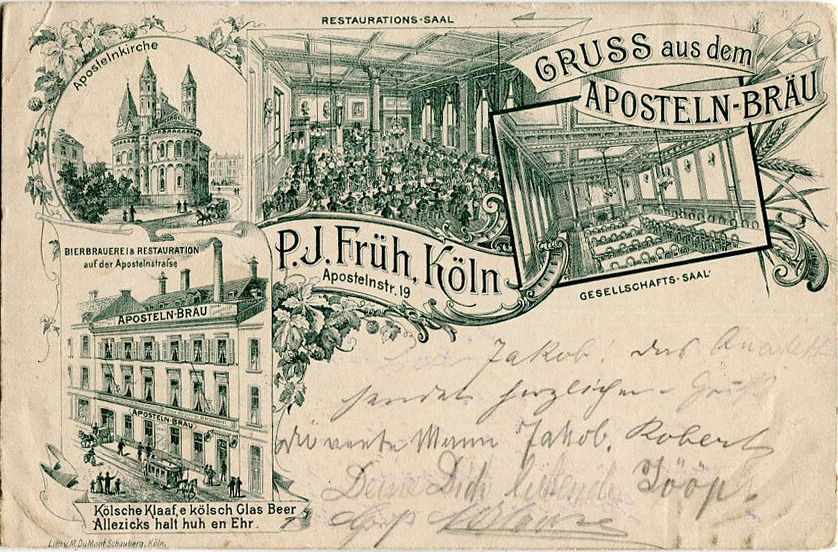 RESTAURATIONS-SAAL
GRUSS aus dem
APOSTELN-BRÄU
Apostelnkirche
GESELLSCHAFTS-SAAL
P.J. Früh, Köln
Apostelnstr. 19
BIERBRAUEREI & RESTAURATION
auf der Apostelnstraße
APOSTELN-BRÄU
APOSTELN BRÄU
Jakob! das
sendet herzlichen
Mann Jakob, Robert
Deine Dich liebende
Kölsche Klaaf, e kölsch Glas Beer
Allezicks halt huh en Ehr.
Lith. v. M. DuMont Schauberg, Köln.